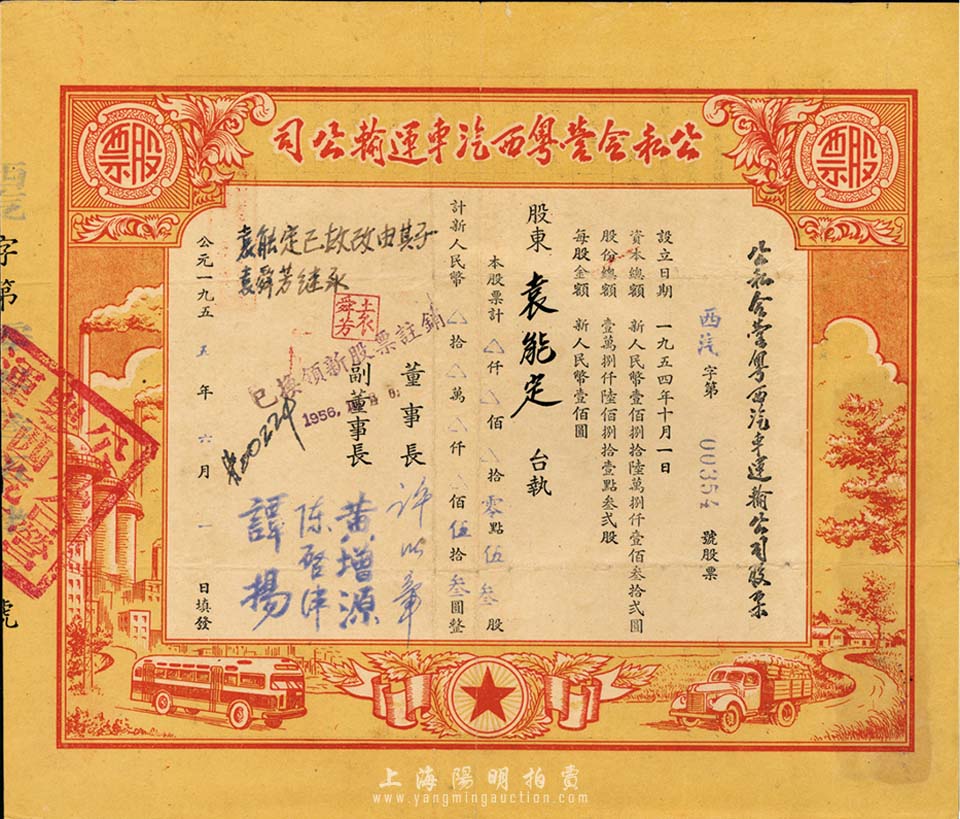 公私合營粵西汽車運輸公司
股票
股票
公私合營粤西汽車運輸公司股票
西汽 字第 00354 號股票
設立日期 一九五四年十月一日
資本總額 新人民幣壹佰捌拾陸萬捌仟壹佰叁拾弍圓
股份總額 壹萬捌仟陸佰捌拾壹點叁弍股
每股金額 新人民幣壹佰圓
股東 袁能定 台執
本股票計 仟 佰 拾 零點伍叁股
計新人民幣 拾 萬 仟 佰伍拾叁圓整
董事長 許以章
副董事長 黄增源
陈啓津
譚揚
公元一九五五年六月一日填發
袁能定已故改由其子
袁舜芳继承
袁舜芳
已換領新股票註銷
1956.
00224
字第
號
上海陽明拍賣
www.yangmingauction.com